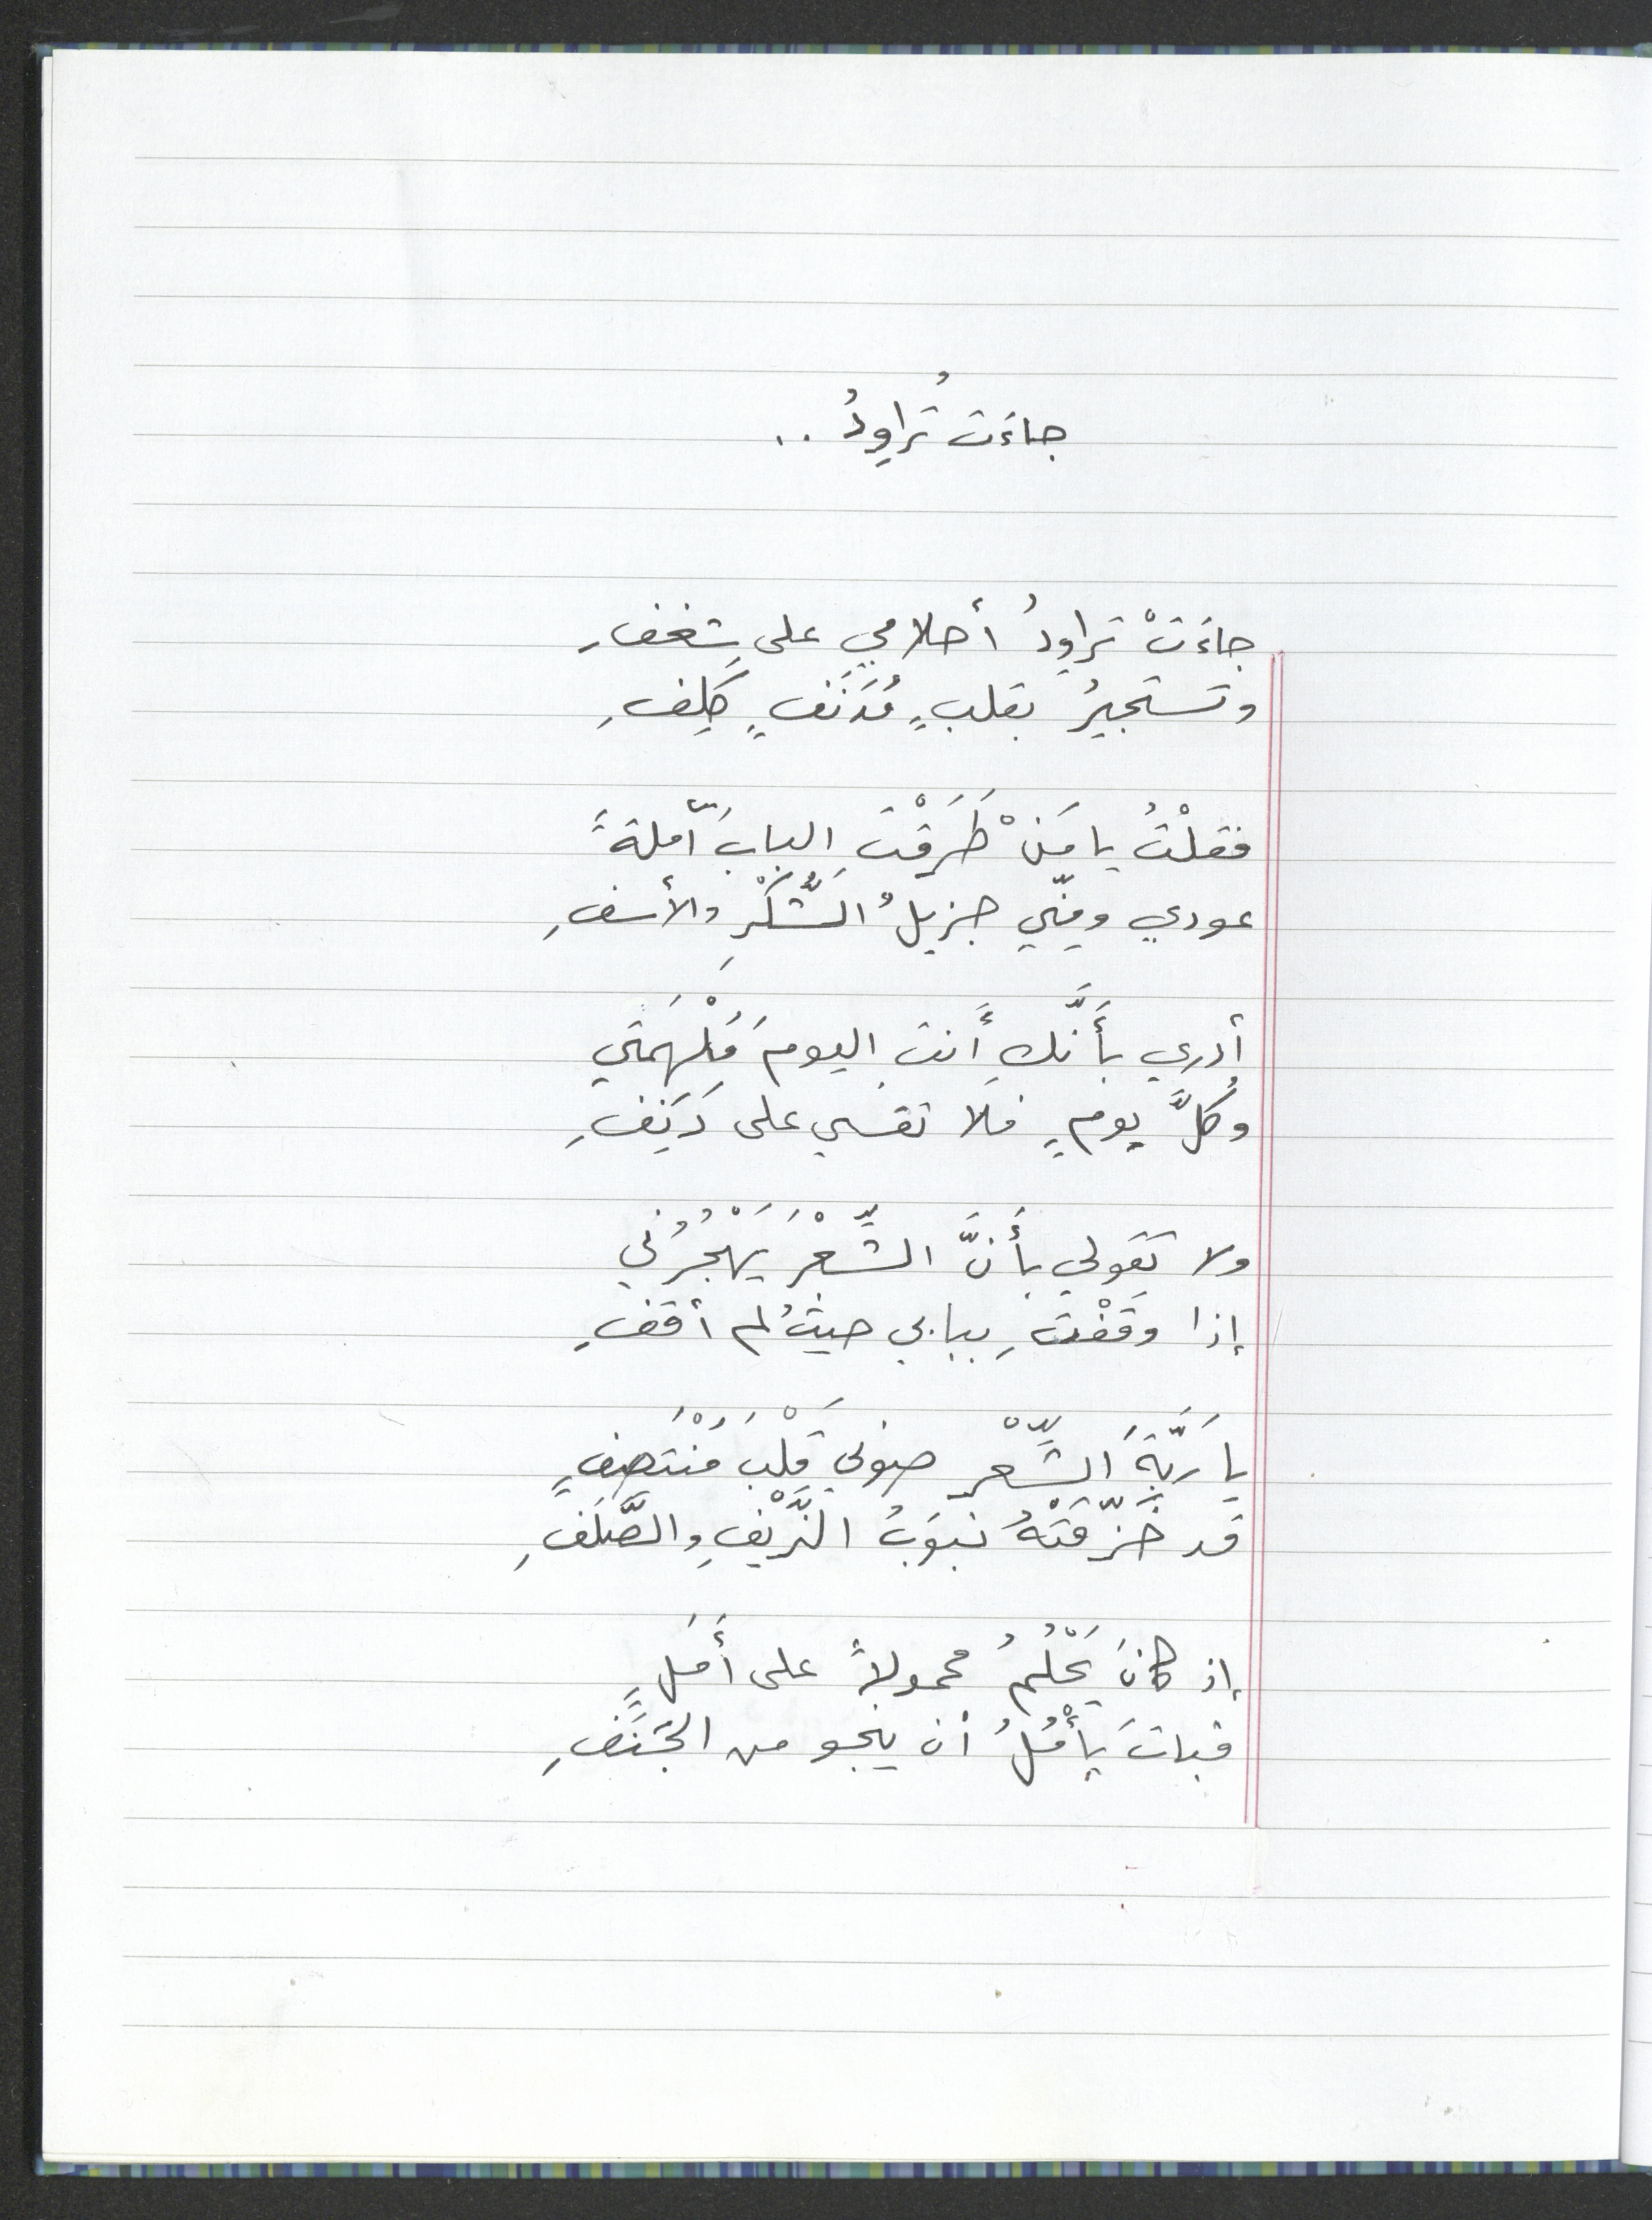 جاءَت تُراوِدُ ..
جاءَتْ تراوِدُ أحلامي على شغفِ
وتستجيرُ بقلبٍ مُدنَفٍ كَلِفِ
فقلْتُ يا مَنْ طَرَقْتِ البابَ آملةً
عودي ومِنّي جزيلُ الشُّكْرِ والأسفِ
أدري بأَنَّكِ أَنتِ اليومَ مُلْهِمَتي
وكُلَّ يومٍ فلا تقسي على دَنِفِ
ولا تَقولي بأَنَّ الشِّعْرَ يَهْجُرُني
إذا وقَفْتِ ببابي حيثُ لم أقفِ
يا رَبَّةَ الشِّعْرِ صوني قَلْبَ مُنْتصفٍ
قد خَزَّقَتْهُ نيوبُ الزَّيْفِ والصَّلَفِ
إذ كانَ يَحْلُمُ محمولاً على أَمَلٍ
فباتَ يأْمُلُ أن ينجو من الجَنَفِ